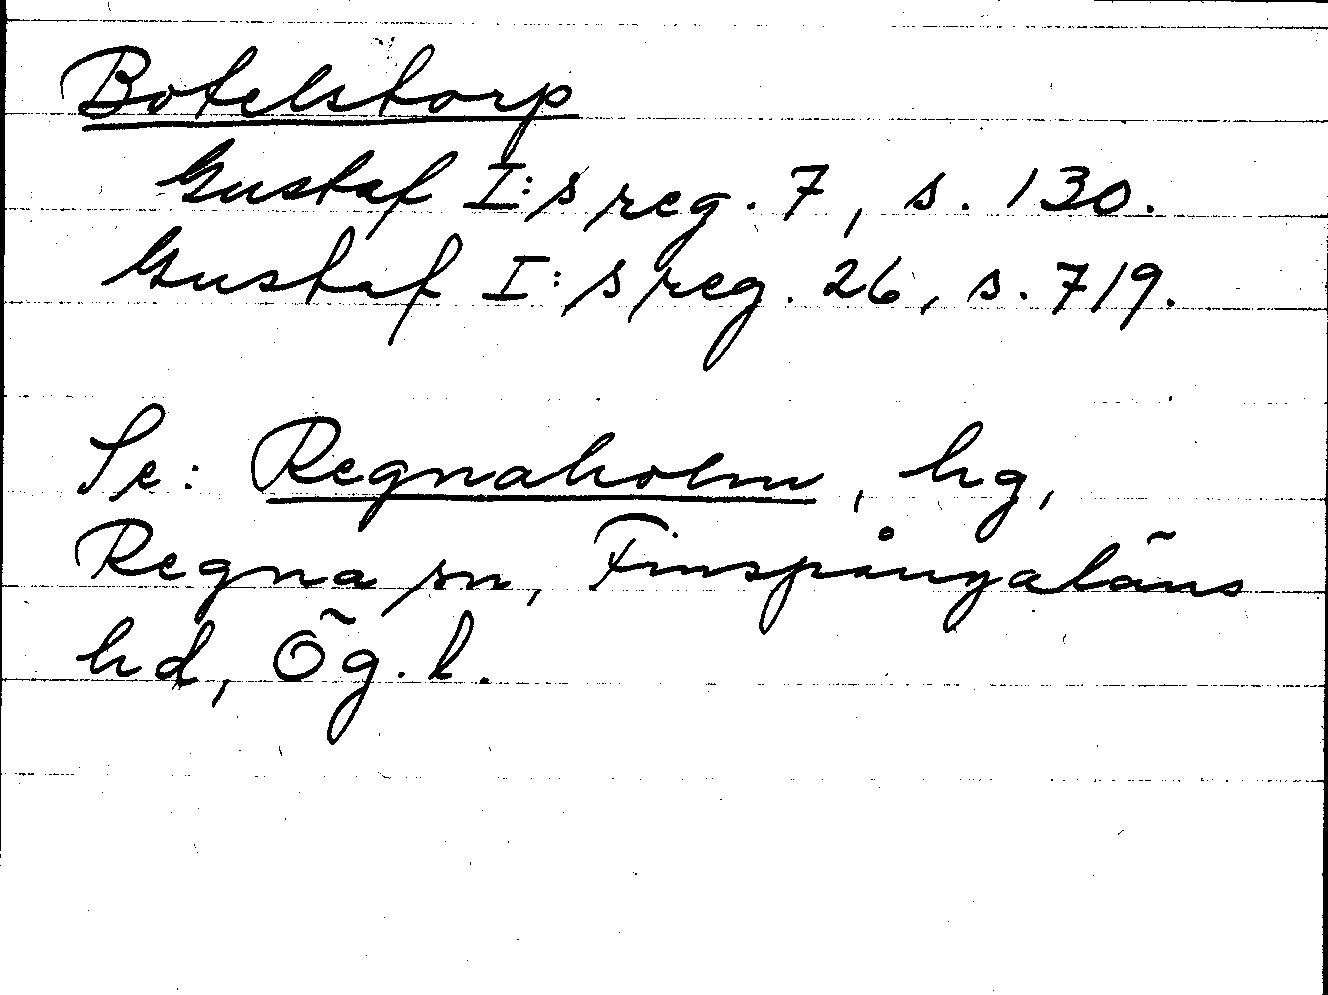 Botelstorp
Gustaf I:s reg. 7, s. 130.
Gustaf I:s reg. 26, s. 719.
Se: Regnaholm, hg,
Regna sn, Finspångaläns
hd, Ög. l.